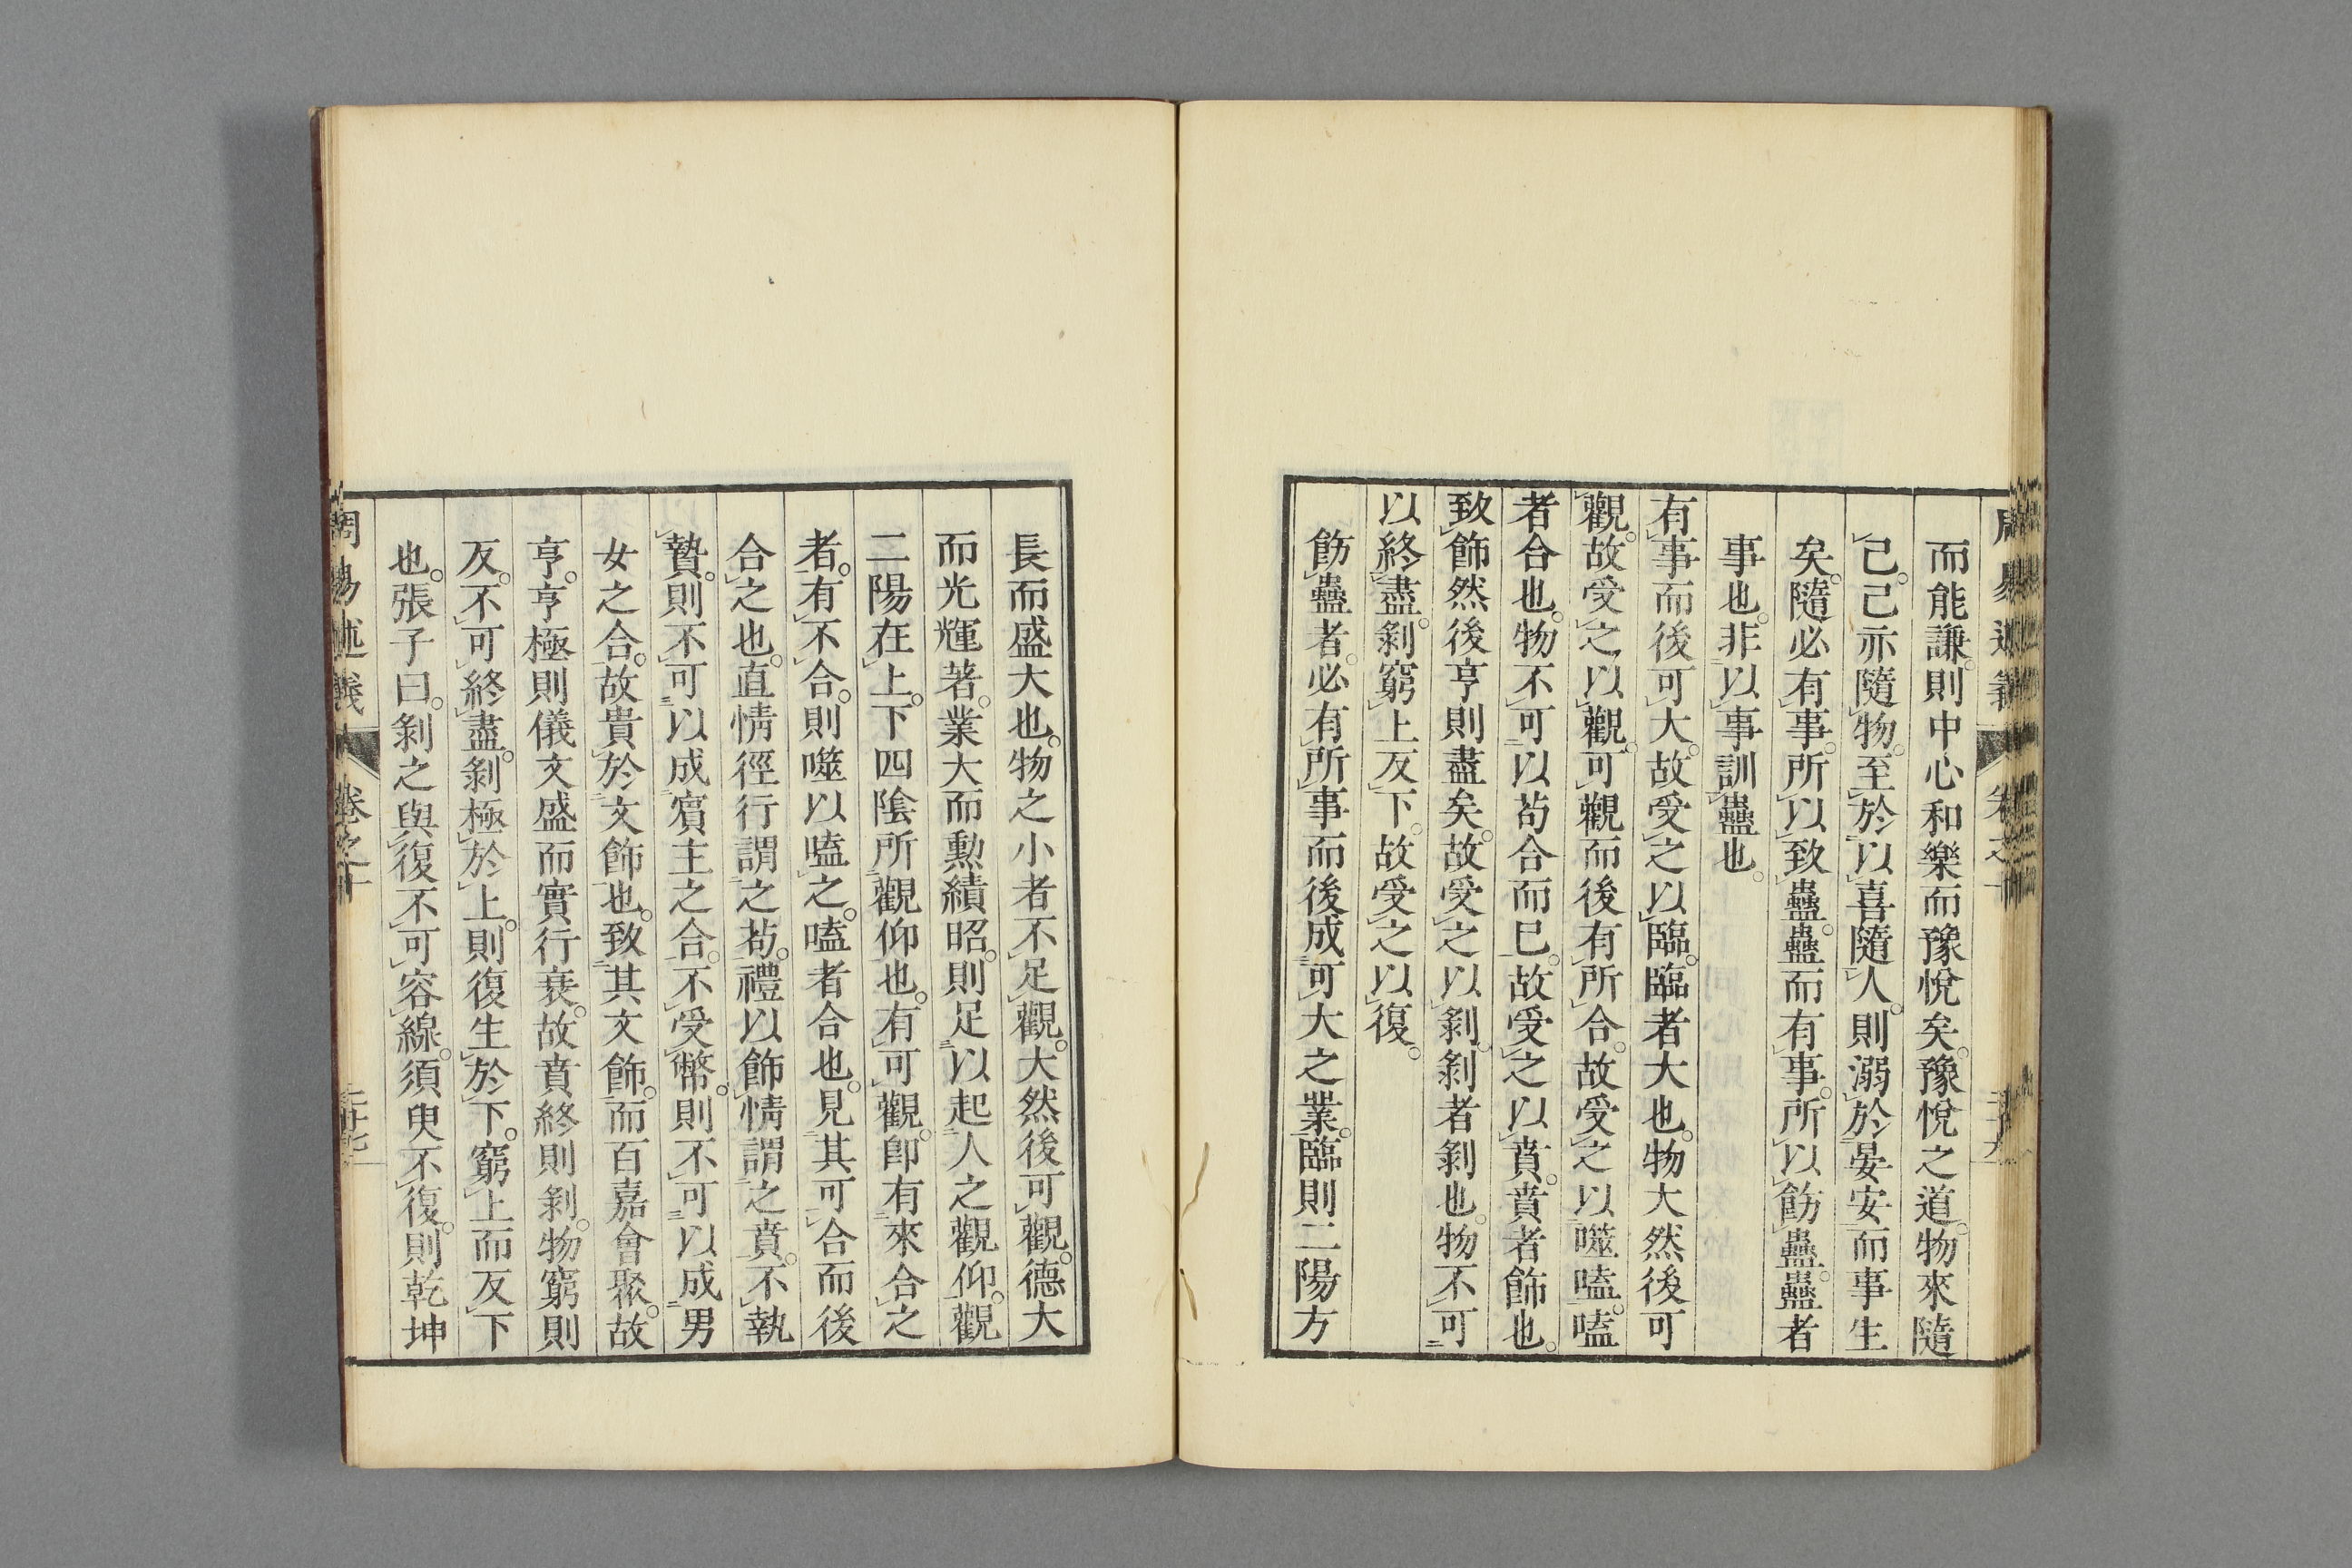 而能謙。則中心和樂而豫悅矣。豫悅之道。物來隨
己。己亦隨物。至於以喜隨人。則溺於晏安。而事生
矣。隨必有事。所以致蠱。蠱而有事。所以飭蠱。蠱者
事也。非以事訓蠱也。
有事而後可大。故受之以臨。臨者大也。物大然後可
觀。故受之以觀。可觀而後有所合。故受之以噬嗑。嗑
者合也。物不可以苟合而已。故受之以賁。賁者飾也。
致飾然後亨則盡矣。故受之以剝。剝者剝也。物不可
以終盡。剝窮上反下。故受之以復。
飭蠱者。必有所事而後成可大之業。臨則二陽方
長而盛大也。物之小者不足觀。大然後可觀。德大
而光輝著。業大而勳績昭。則足以起人之觀仰。觀
二陽在上。下四陰所觀仰也。有可觀。卽有來合之
者。有不合。則噬以嗑之。嗑者合也。見其可合而後
合之也。直情徑行謂之苟。禮以飾情謂之賁。不執
贄。則不可以成賓主之合。不受幣。則不可以成男
女之合。故貴於文飾也。致其文飾。而百嘉會聚。故
亨。亨極則儀文盛而實行衰。故賁終則剝。物窮則
反。不可終盡。剝極於上。則復生於下。窮上而反下
也。張子曰。剝之與復不可容線。須臾不復。則乾坤
周易述義 卷之十